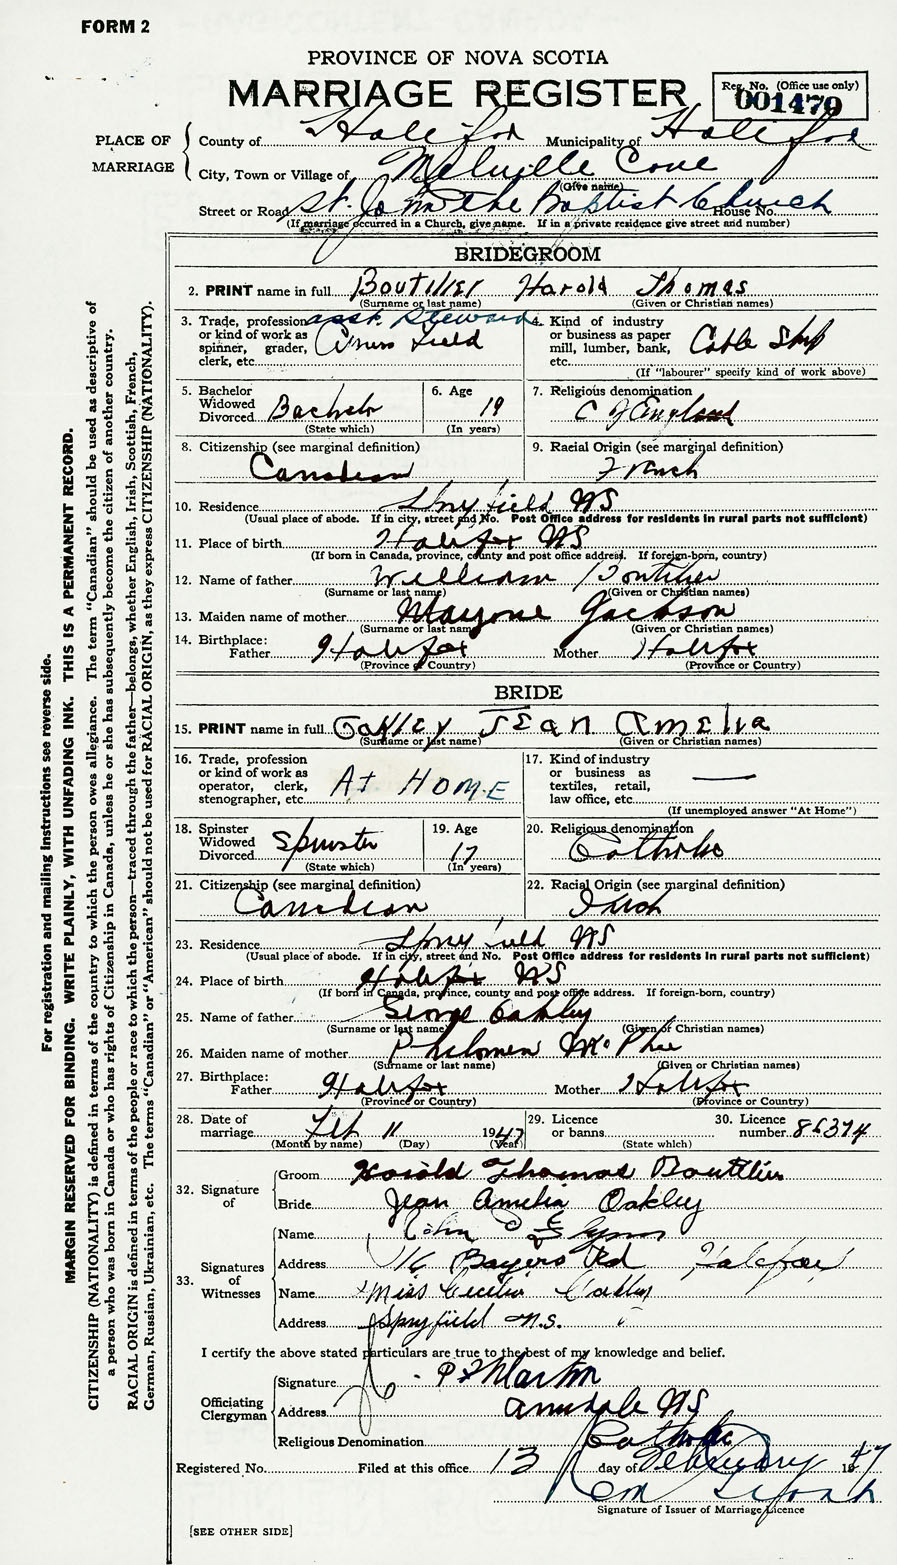 FORM 2
PROVINCE OF NOVA SCOTIA
MARRIAGE REGISTER
Reg. No. (Office use only)
001479
PLACE OF MARRIAGE
County of Halifax Municipality of Halifax
City, Town or Village of Melville Cove
(Give name)
Street or Road St. John the Baptist Church House No.
(If marriage occurred in a Church, give name. If in a private residence give street and number)
BRIDEGROOM
2. PRINT name in full Boutilier Harold Thomas
(Surname or last name) (Given or Christian names)
3. Trade, profession or kind of work as spinner, grader, clerk, etc. asst. Steward
4. Kind of industry or business as paper mill, lumber, bank, etc. Cable Ship
(If "labourer" specify kind of work above)
5. Bachelor Widowed Divorced Bachelor
(State which)
6. Age 19
(In years)
7. Religious denomination C of England
8. Citizenship (see marginal definition)
Canadian
9. Racial Origin (see marginal definition)
French
10. Residence Spryfield NS
(Usual place of abode. If in city, street and No. Post Office address for residents in rural parts not sufficient)
11. Place of birth Halifax NS
(If born in Canada, province, county and post office address. If foreign-born, country)
12. Name of father William Boutilier
(Surname or last name) (Given or Christian names)
13. Maiden name of mother Marjorie Jackson
(Surname or last name) (Given or Christian names)
14. Birthplace:
Father Halifax Mother Halifax
(Province or Country) (Province or Country)
BRIDE
15. PRINT name in full Oakley Jean Amelia
(Surname or last name) (Given or Christian names)
16. Trade, profession or kind of work as operator, clerk, stenographer, etc. At HOME
17. Kind of industry or business as textiles, retail, law office, etc. —
(If unemployed answer "At Home")
18. Spinster Widowed Divorced Spinster
(State which)
19. Age 17
(In years)
20. Religious denomination
Catholic
21. Citizenship (see marginal definition)
Canadian
22. Racial Origin (see marginal definition)
Irish
23. Residence Spryfield NS
(Usual place of abode. If in city, street and No. Post Office address for residents in rural parts not sufficient)
24. Place of birth Halifax NS
(If born in Canada, province, county and post office address. If foreign-born, country)
25. Name of father George Oakley
(Surname or last name) (Given or Christian names)
26. Maiden name of mother Philomen McPhee
(Surname or last name) (Given or Christian names)
27. Birthplace:
Father Halifax Mother Halifax
(Province or Country) (Province or Country)
28. Date of marriage Feb 11 1947
(Month by name) (Day) (Year)
29. Licence or banns
(State which)
30. Licence number 86374
32. Signature of
Groom Harold Thomas Boutilier
Bride Jean Amelia Oakley
33. Signatures of Witnesses
Name John
Address 116 Bayers Rd Halifax
Name Miss Cecilia Oakley
Address Spryfield N.S.
I certify the above stated particulars are true to the best of my knowledge and belief.
Officiating Clergyman
Signature Martin
Address Armdale NS
Religious Denomination Catholic
Registered No. Filed at this office 13 day of February 1947
Signature of Issuer of Marriage Licence
[SEE OTHER SIDE]
For registration and mailing instructions see reverse side.
MARGIN RESERVED FOR BINDING. WRITE PLAINLY, WITH UNFADING INK. THIS IS A PERMANENT RECORD.
CITIZENSHIP (NATIONALITY) is defined in terms of the country to which the person owes allegiance. The term "Canadian" should be used as descriptive of
a person who was born in Canada or who has rights of Citizenship in Canada, unless he or she has subsequently become the citizen of another country.
RACIAL ORIGIN is defined in terms of the people or race to which the person—traced through the father—belongs, whether English, Irish, Scottish, French,
German, Russian, Ukrainian, etc. The terms "Canadian" or "American" should not be used for RACIAL ORIGIN, as they express CITIZENSHIP (NATIONALITY).